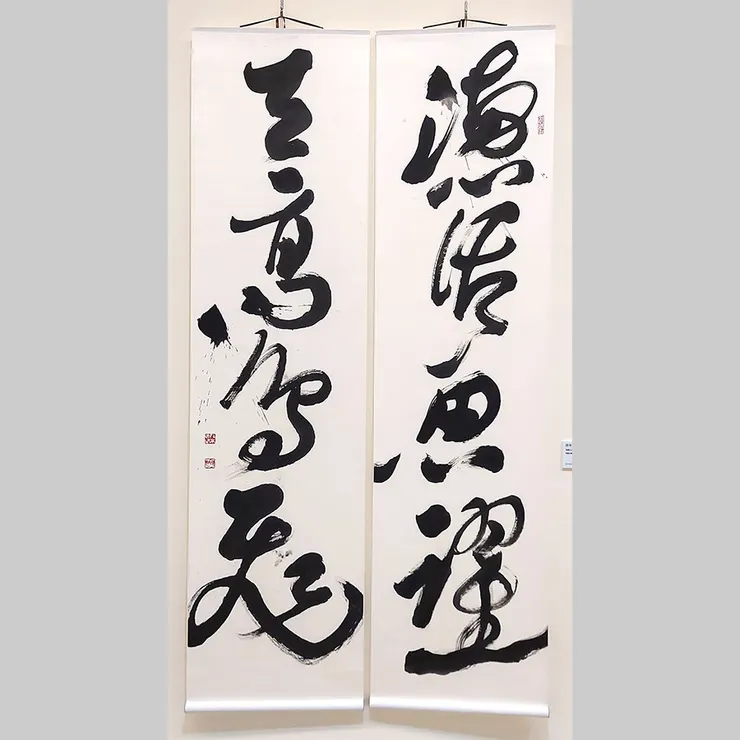 海闊魚躍
天高鳥飛